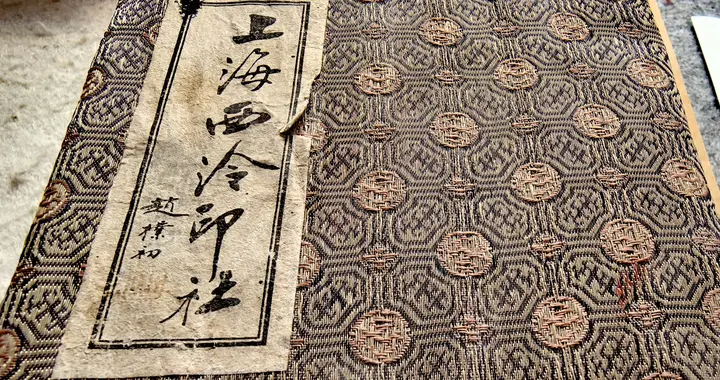 上海西泠印社
趙樸初